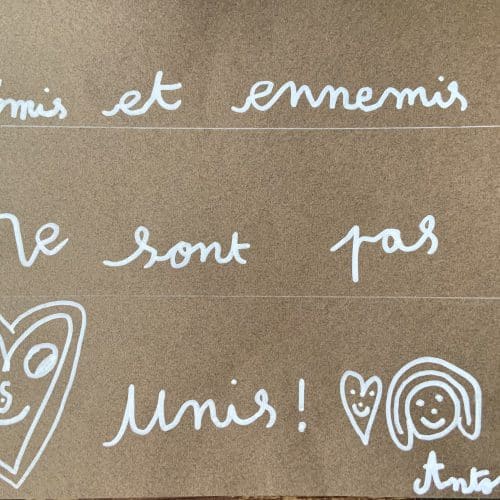 amis et ennemis
ne sont pas
unis !
Anto